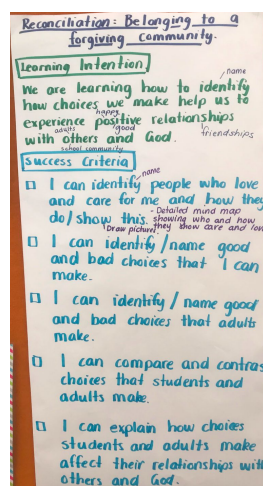 Reconciliation: Belonging to a
forgiving community.
Learning Intention
name
We are learning how to identify
how choices we make help us to
happy
experience positive relationships
adults good friendships
with others and God.
school community
Success Criteria
name
I can identify people who love
and care for me and how they
do/show this. - Detailed mind map
showing who and how
Draw picture they show care and love
I can identify/name good
and bad choices that I can
make.
I can identify/name good
and bad choices that adults
make.
I can compare and contras
choices that students and
adults make.
I can explain how choices
students and adults make
affect their relationships wit
others and God.